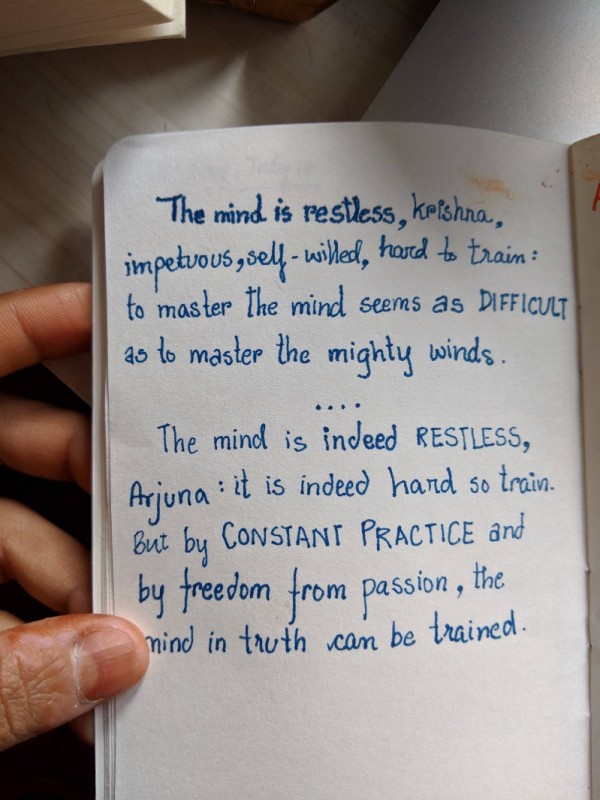 The mind is restless, krishna,
impetuous, self-willed, hard to train:
to master the mind seems as DIFFICULT
as to master the mighty winds.
....
The mind is indeed RESTLESS,
Arjuna: it is indeed hard so train.
But by CONSTANT PRACTICE and
by freedom from passion, the
mind in truth can be trained.